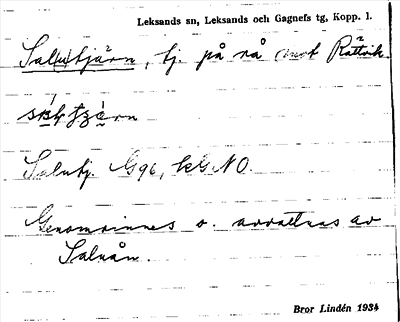 Leksands sn, Leksands och Gagnefs tg, Kopp. l.
Sal(u)tjärn, tj. på rå mot Rättvik
Salutj. G96, kLG NO.
Genomrinnes o. avvattnas av
Saluån.
Bror Lindén 1934